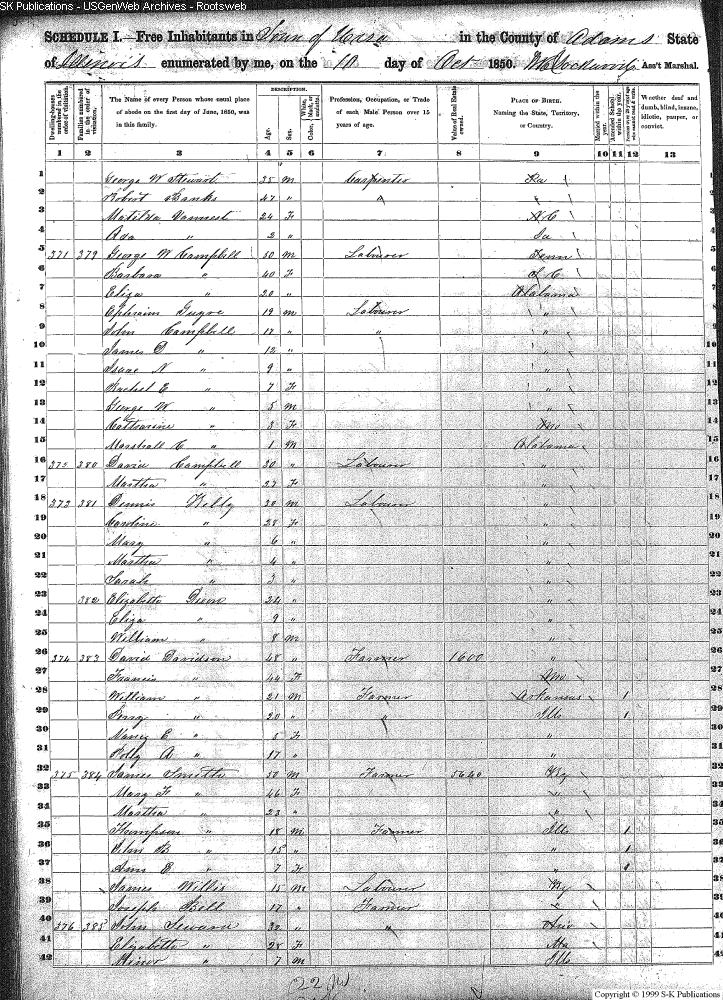 SK Publications - USGenWeb Archives - Rootsweb
SCHEDULE I.—Free Inhabitants in Town of in the County of Adams State
of Illinois enumerated by me, on the 10 day of Oct 1850. Ass't Marshal.
Dwelling-houses numbered in the order of visitation.
Families numbered in the order of visitation.
The Name of every Person whose usual place of abode on the first day of June, 1850, was in this family.
DESCRIPTION.
Age.
Sex.
White, Color, black, or mulatto.
Profession, Occupation, or Trade of each Male Person over 15 years of age.
Value of Real Estate owned.
PLACE OF BIRTH. Naming the State, Territory, or Country.
Married within the year.
Attended School within the year.
Persons over 20 y'rs of age who cannot read & write.
Whether deaf and dumb, blind, insane, idiotic, pauper, or convict.
1 2 3 4 5 6 7 8 9 10 11 12 13
1 George W Stewart 35 M Carpenter 1
2 Robert Banks 47 " " 2
3 Matilda Vannest 24 F N C 3
4 Ada " 2 " 4
5 371 379 George W Campbell 50 M Labourer Tenn 5
6 Barbara " 40 F S C 6
7 Eliza " 20 " Alabama 7
8 Ephraim 19 M Labourer " 8
9 John Campbell 17 " " " 9
10 James D " 12 " " 10
11 Isaac N " 9 " " 11
12 Rachel E " 7 F " 12
13 George W " 5 M " 13
14 Catharine " 3 F Mo 14
15 Marshall C " 1 M Alabama 15
16 372 380 David Campbell 30 " Labourer " 16
17 Martha " 27 F " 17
18 373 381 Dennis Kelly 30 M Labourer " 18
19 Caroline " 28 F " 19
20 Mary " 6 " " 20
21 Martha " 4 " " 21
22 Sarah " 3 " " 22
23 382 Elizabeth Dixon 24 " " 23
24 Eliza " 9 " " 24
25 William " 8 M " 25
26 374 383 David Davidson 48 " Farmer 1600 " 26
27 Francis " 44 F Mo 27
28 William " 21 M Farmer Arkansas 1 28
29 " 20 " " Ills 1 29
30 Nancy E " 5 F " 30
31 Polly A " 17 " " 31
32 375 384 James Smith 50 M Farmer 5640 Ky 32
33 Mary F " 46 F " 33
34 Martha " 23 " " 34
35 Thompson " 18 M Farmer Ills 1 35
36 John B " 15 " " 1 36
37 Ann E " 7 F " 1 37
38 James Willis 15 M Labourer Ky 38
39 Joseph Bell 17 " Farmer " 39
40 376 385 John Seward 32 " " Ohio 40
41 Elizabeth " 28 F 41
42 Minor " 7 M Ills 42
Copyright © 1999 S-K Publications